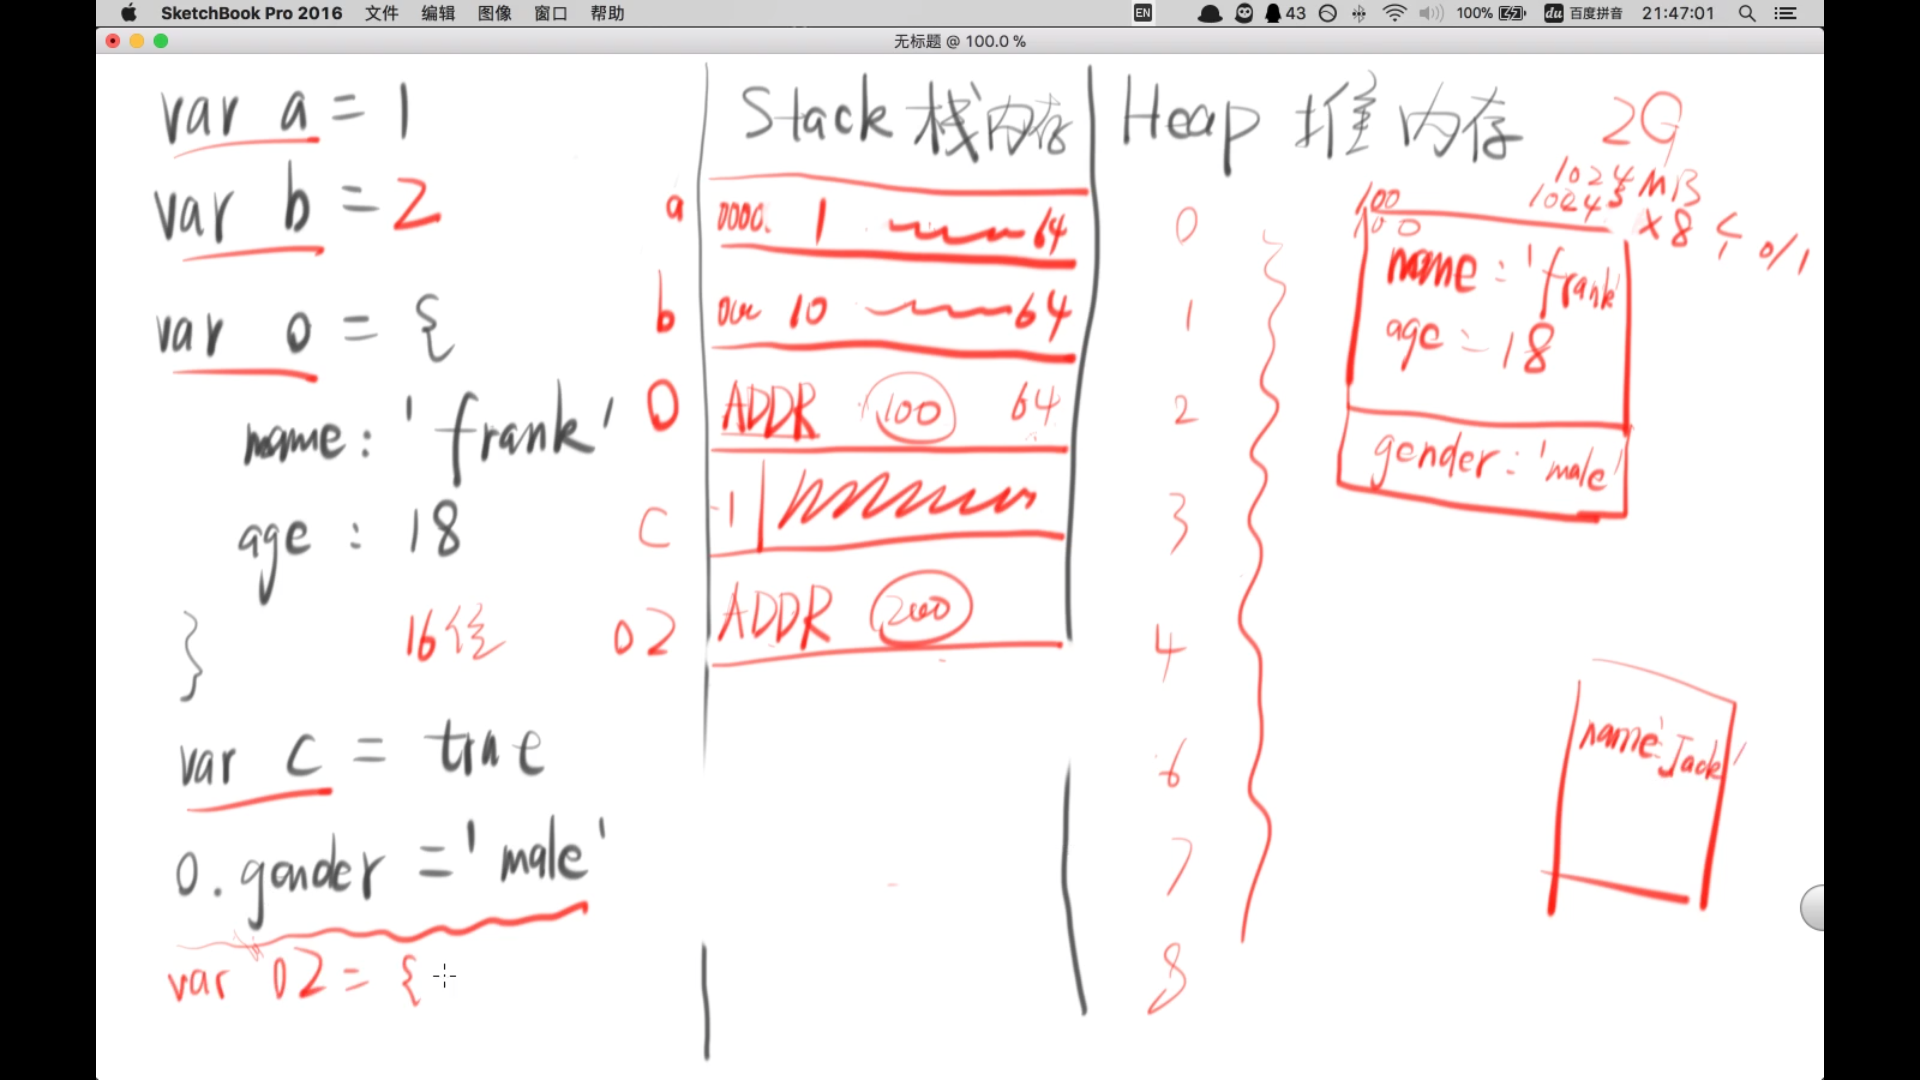 SketchBook Pro 2016 文件 编辑 图像 窗口 帮助 EN 43 100% du 百度拼音 21:47:01
无标题 @ 100.0 %
var a = 1
var b = 2
var o = {
name: 'frank'
age : 18
}
16倍
var c = true
o.gender = 'male'
var o2 = {
Stack 栈内存
a 0000. 1 64
b 10 64
o ADDR 100 64
c 1
o2 ADDR 200
Heap 堆内存
2G
1024 MB
1024
x8 0/1
0
1
2
3
4
6
7
8
100
100
name : 'frank'
age : 18
gender : 'male'
name: 'Jack'